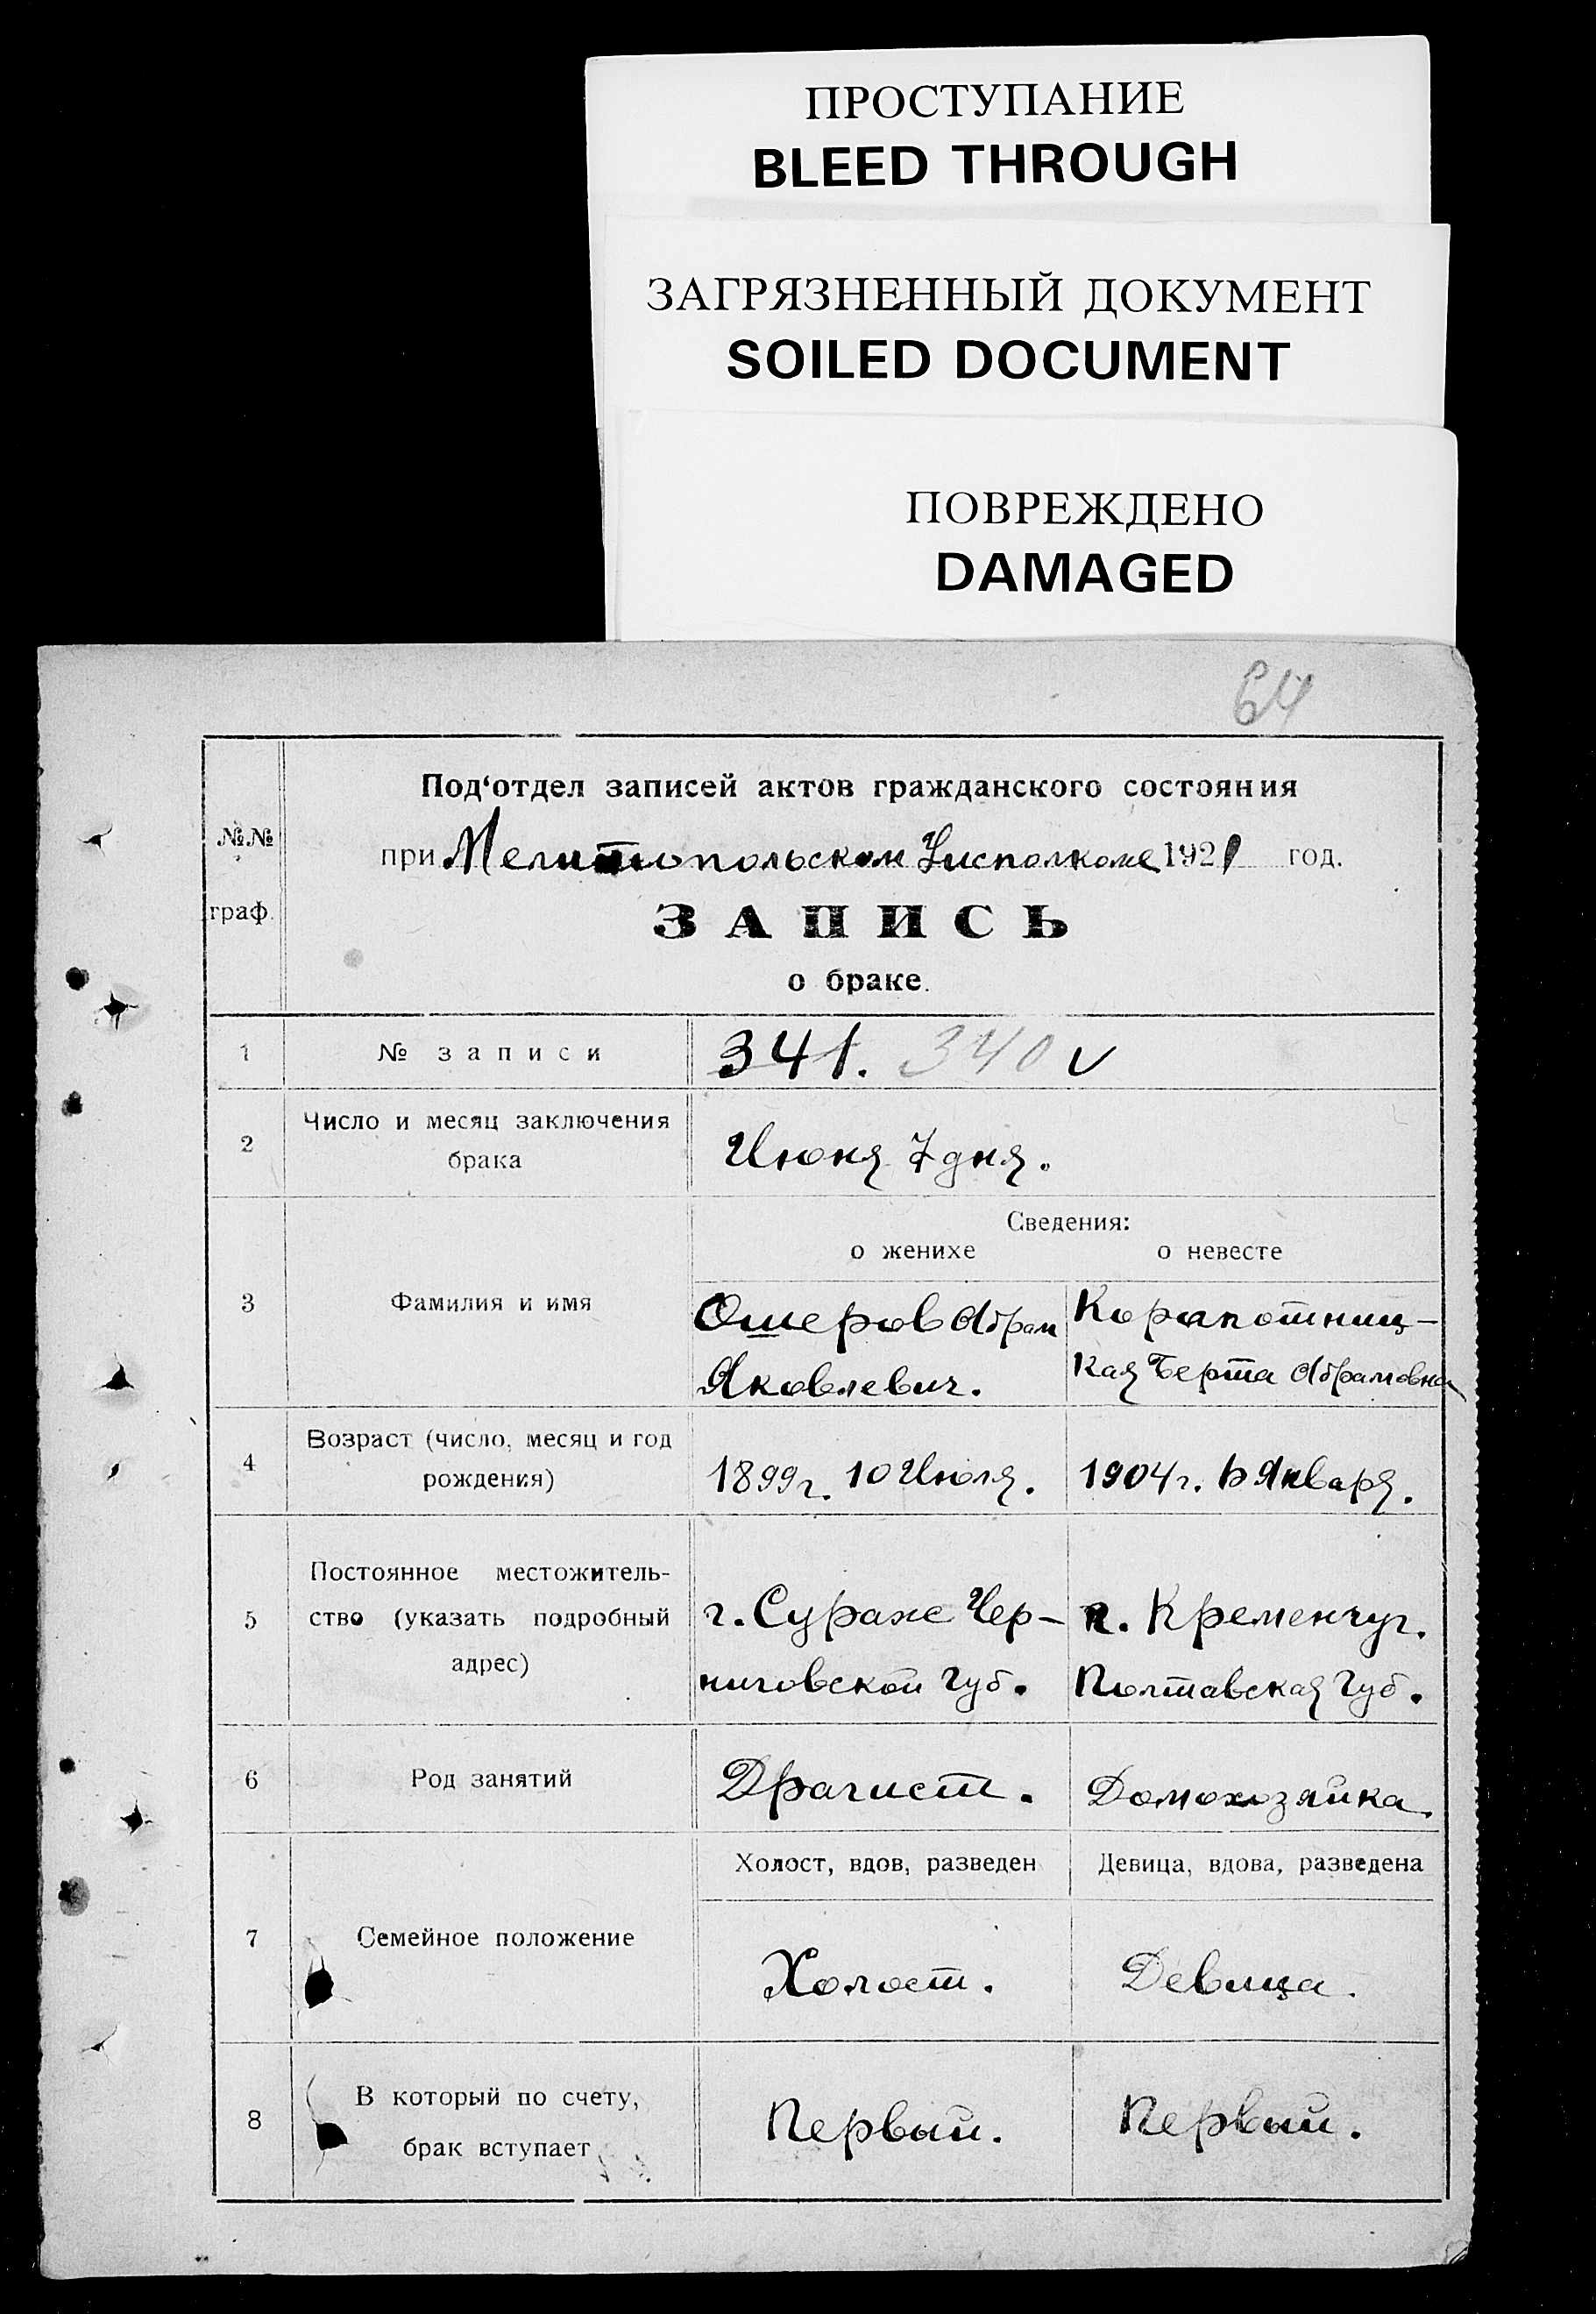 ПРОСТУПАНИЕ
BLEED THROUGH
ЗАГРЯЗНЕННЫЙ ДОКУМЕНТ
SOILED DOCUMENT
ПОВРЕЖДЕНО
DAMAGED
64
Под‘отдел записей актов гражданского состояния
№№
граф.
при Мелитопольском Уисполкоме 1921 год.
ЗАПИСЬ
о браке.
1 № записи 341. 340 v
2 Число и месяц заключения
брака
Июня 7 дня.
Сведения:
о женихе о невесте
3 Фамилия и имя
Ошеров Абрам
Яковлевич.
Корапотниц-
кая Берта Абрамовна
4 Возраст (число, месяц и год
рождения)
1899г. 10 Июля. 1904г. 6 Января.
5 Постоянное местожитель-
ство (указать подробный
адрес)
г. Сураже Чер-
ниговской Губ.
г. Кременчуг.
Полтавская Губ.
6 Род занятий Драгист. Домохозяйка.
Холост, вдов, разведен Девица, вдова, разведена
7 Семейное положение
Холост. Девица.
8 В который по счету,
брак вступает
Первый. Первый.